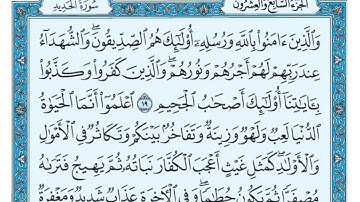 الجزء السابع والعشرون سورة الحديد
وَالَّذِينَ ءَامَنُوا۟ بِاللَّهِ وَرُسُلِهِۦٓ أُو۟لَٰٓئِكَ هُمُ الصِّدِّيقُونَ ۖ وَالشُّهَدَآءُ
عِندَ رَبِّهِمْ لَهُمْ أَجْرُهُمْ وَنُورُهُمْ ۖ وَالَّذِينَ كَفَرُوا۟ وَكَذَّبُوا۟
بِـَٔايَٰتِنَآ أُو۟لَٰٓئِكَ أَصْحَٰبُ الْجَحِيمِ ١٩ اعْلَمُوٓا۟ أَنَّمَا الْحَيَوٰةُ
الدُّنْيَا لَعِبٌ وَلَهْوٌ وَزِينَةٌ وَتَفَاخُرٌۢ بَيْنَكُمْ وَتَكَاثُرٌ فِى الْأَمْوَٰلِ
وَالْأَوْلَٰدِ ۖ كَمَثَلِ غَيْثٍ أَعْجَبَ الْكُفَّارَ نَبَاتُهُۥ ثُمَّ يَهِيجُ فَتَرَىٰهُ
مُصْفَرًّا ثُمَّ يَكُونُ حُطَٰمًا ۖ وَفِى الْءَاخِرَةِ عَذَابٌ شَدِيدٌ وَمَغْفِرَةٌ